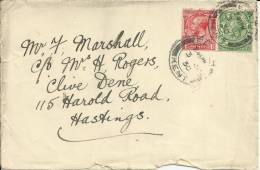 Mr F. Marshall,
c/o Mr H Rogers,
Clive Dene,
115 Harold Road,
Hastings.